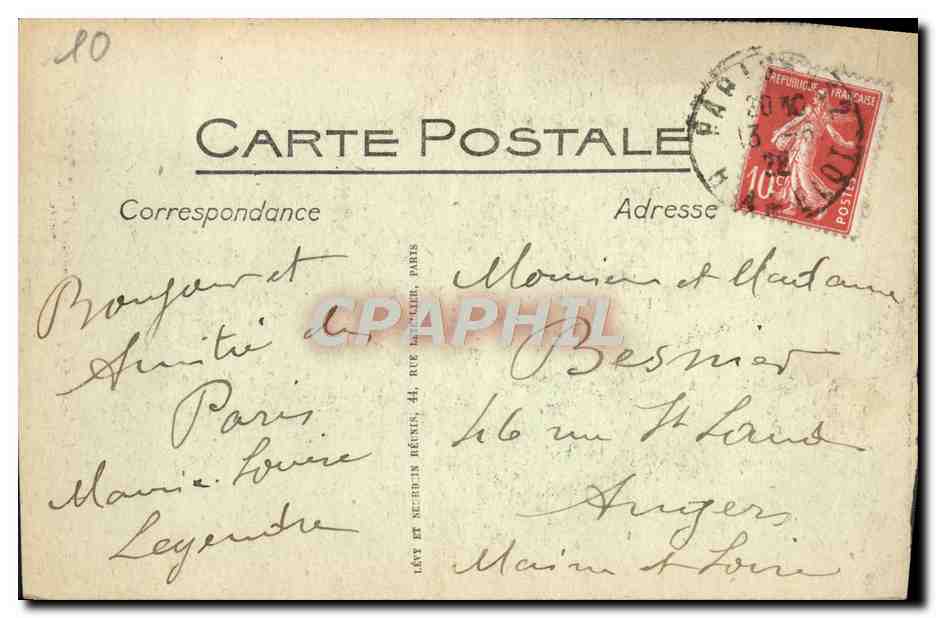 10
CARTE POSTALE
REPUBLIQUE FRANÇAISE
10 c
POSTES
PARIS
Correspondance
Adresse
Bonjour et
Amitié de
Paris
Marie-Louise
Legendre
LÉVY ET NEURDEIN RÉUNIS, 44, RUE LETELLIER, PARIS
Monsieur et Madame
Besnier
46 rue St Laud
Angers
Maine et Loire
CPAPHIL